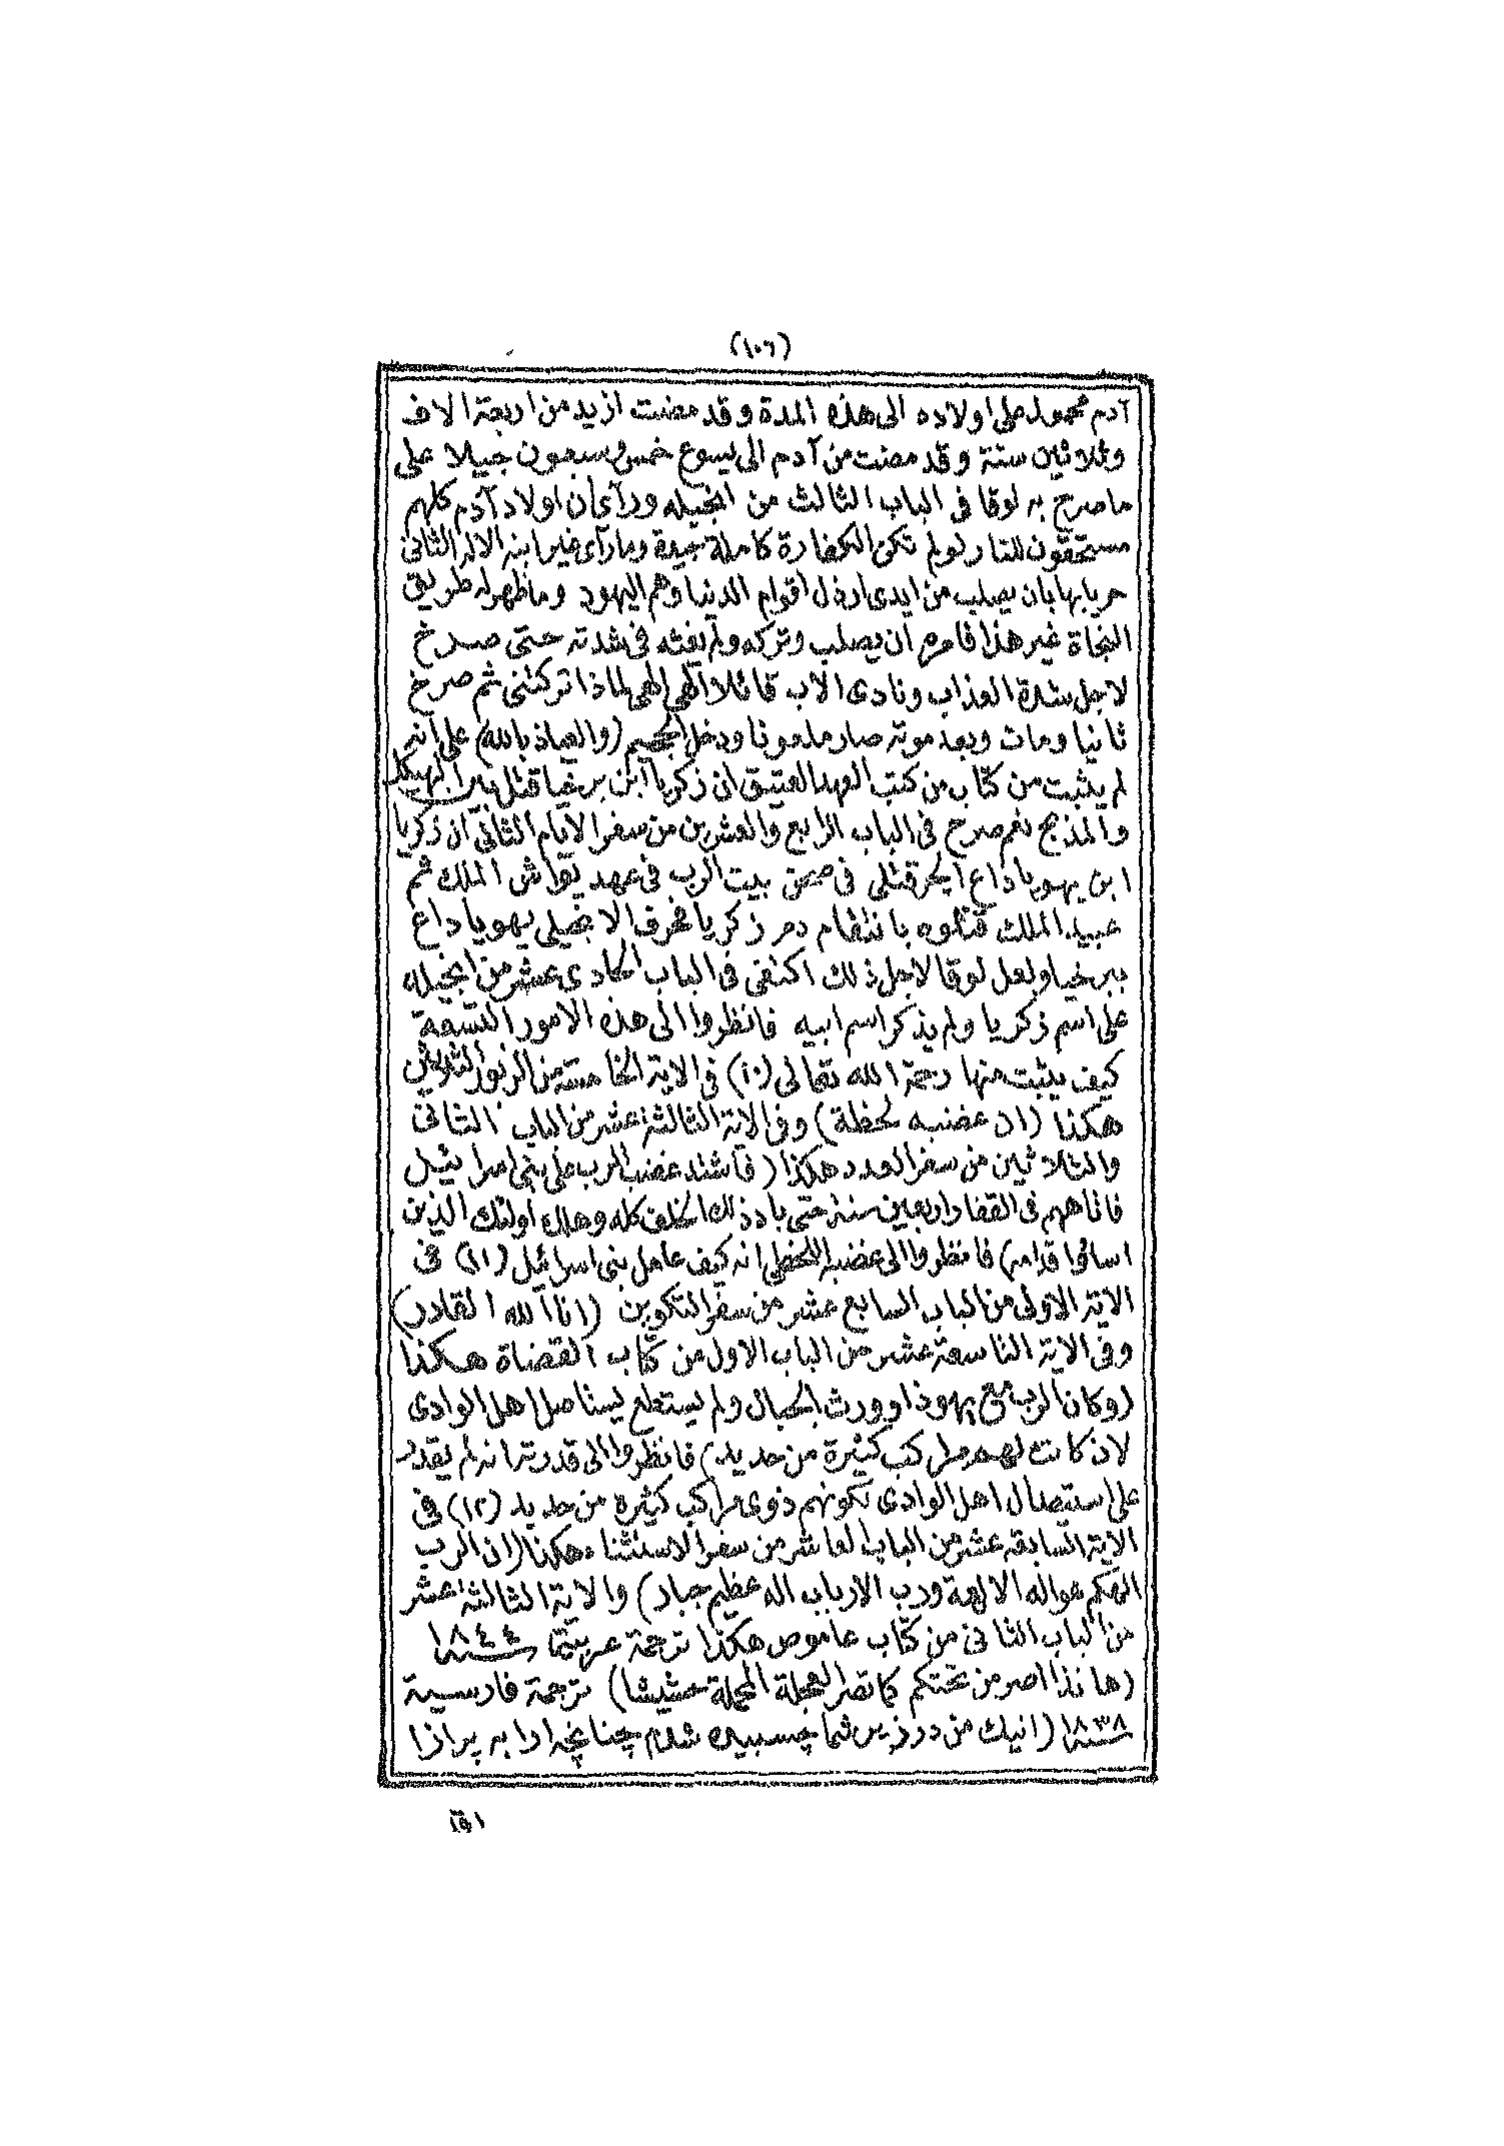 (١٠٦)
آدم محمول على اولاده الى هذه المدة وقد مضت ازيد من اربعة الاف
وثلاثين سنة وقد مضت من آدم الى يسوع خمس وسبعون جيلا على
ما صرح به لوقا فى الباب الثالث من انجيله ورآى ان اولاد آدم كلهم
مستحقون للنار لو لم تكن الكفارة كاملة جيدة وما رآى غير ابنه الاله الثانى
حريا بها بان يصلب من ايدى ارذل اقوام الدنيا وهم اليهود وما ظهر له طريق
النجاة غير هذا فامره ان يصلب وتركه ولم يغثه فى شدته حتى صرخ
لاجل شدة العذاب ونادى الاب قائلا الهى الهى لماذا تركتنى ثم صرخ
ثانيا ومات وبعد موته صار ملعونا ودخل الجحيم (والعياذ بالله) على انه
لم يثبت من كتاب من كتب العهد العتيق ان زكريا ابن برخيا قتل بين الهيكل
والمذبح نعم صرح فى الباب الرابع والعشرين من سفر الايام الثانى ان زكريا
ابن يهوياداع الحبر قتل فى صحن بيت الرب فى عهد يواش الملك ثم
عبيد الملك قتلوه بانتقام دم زكريا فحرف الانجيلى يهوياداع
ببرخيا ولعل لوقا لاجل ذلك اكتفى فى الباب الحادى عشر من انجيله
على اسم زكريا ولم يذكر اسم ابيه فانظروا الى هذه الامور التسعة
كيف يثبت منها رحمة الله تعالى (١٠) فى الاية الخامسة من الزبور الثلاثين
هكذا (ان غضبه لحظة) وفى الاية الثالثة عشر من الباب الثانى
والثلاثين من سفر العدد هكذا (فاشتد غضب الرب على بنى اسرائيل
فاتاههم فى القفار اربعين سنة حتى باد ذلك الخلف كله وهلك اولئك الذين
اسائوا قدامه) فانظروا الى غضبه اللحظى انه كيف عامل بنى اسرائيل (١١) فى
الاية الاولى من الباب السابع عشر من سفر التكوين (انا الله القادر)
وفى الاية التاسعة عشر من الباب الاول من كتاب القضاة هكذا
(وكان الرب مع يهوذا وورث الجبال ولم يستطع يستاصل اهل الوادى
لان كانت لهم مراكب كثيرة من حديد) فانظروا الى قدرته انه لم يقدر
على استيصال اهل الوادى لكونهم ذوى مراكب كثيرة من حديد (١٢) فى
الاية السابعة عشر من الباب العاشر من سفر الاستثناء هكذا (ان الرب
الهكم هو اله الالهة ورب الارباب اله عظيم جبار) والاية الثالثة عشر
من الباب الثانى من كتاب عاموص هكذا ترجمة عربية ١٨٤٤
(هانذا اصر من تحتكم كما تصر العجلة المحملة حشيشا) ترجمة فارسية
١٨٣٨ (اينك من در زير شما چسبيده شدم چنانچه ارابه پر از ا